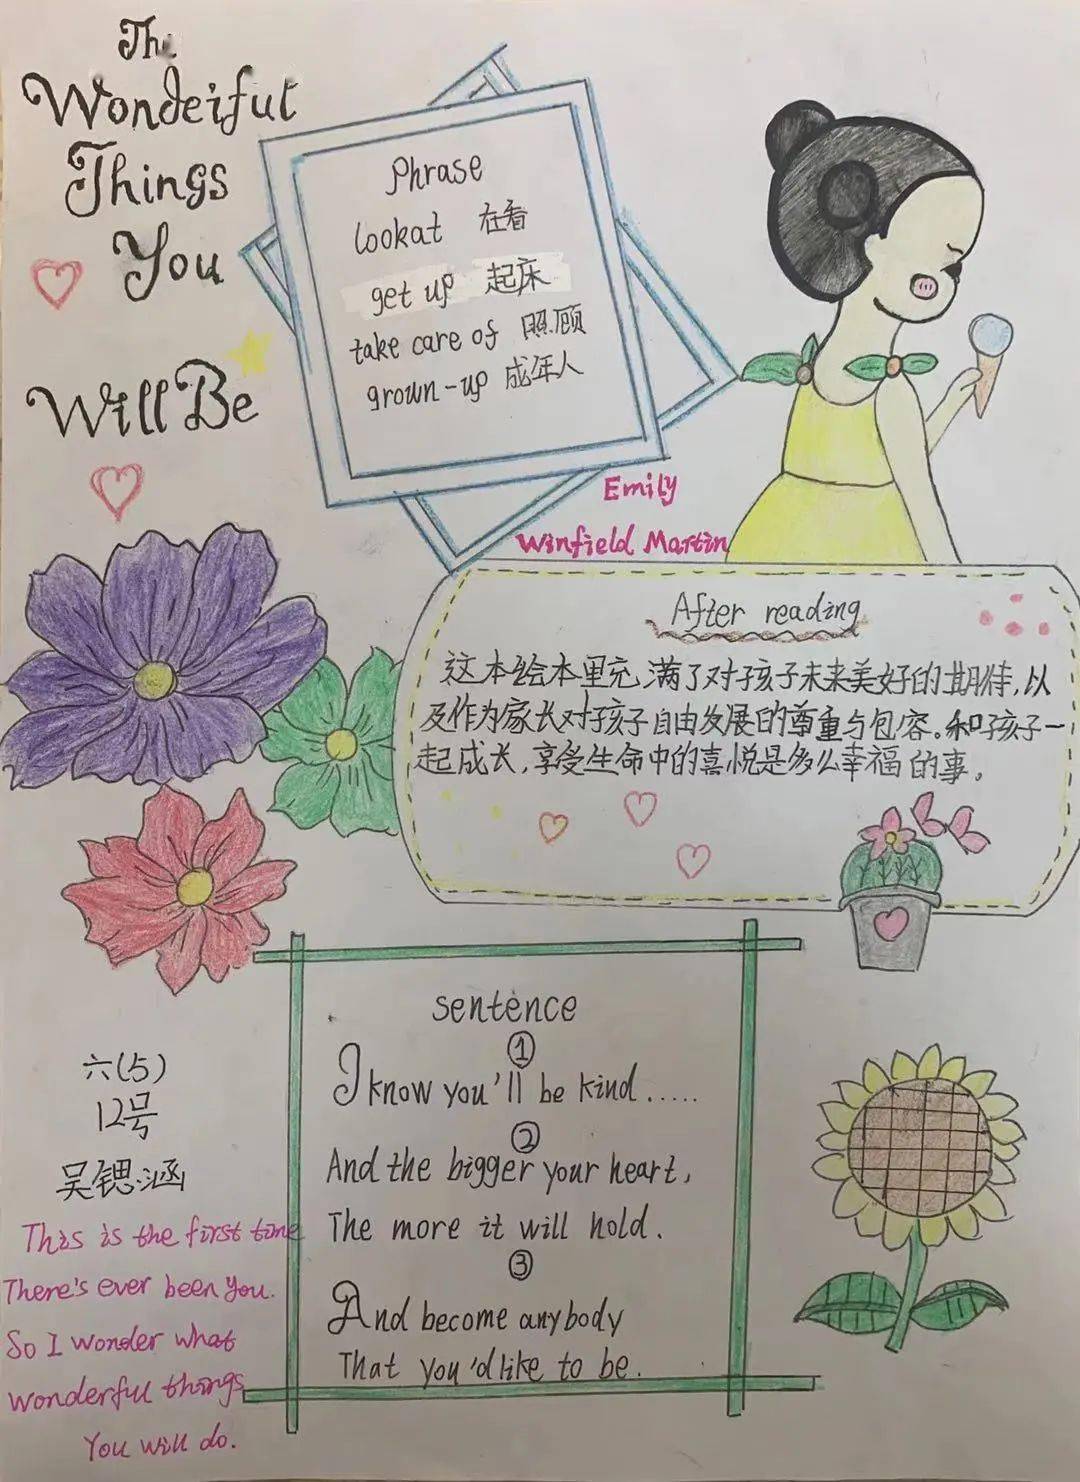 The
Wonderful
Things
You
Will Be
Phrase
lookat 在看
get up 起床
take care of 照顾
grown-up 成年人
Emily
Winfield Martin
After reading
这本绘本里充满了对孩子未来美好的期待,以
及作为家长对孩子自由发展的尊重与包容。和孩子一
起成长,享受生命中的喜悦是多么幸福的事。
sentence
①
I know you'll be kind.....
②
And the bigger your heart,
The more it will hold.
③
And become anybody
That you'd like to be.
六(5)
12号
吴锶涵
This is the first time
There's ever been you.
So I wonder what
wonderful things
You will do.